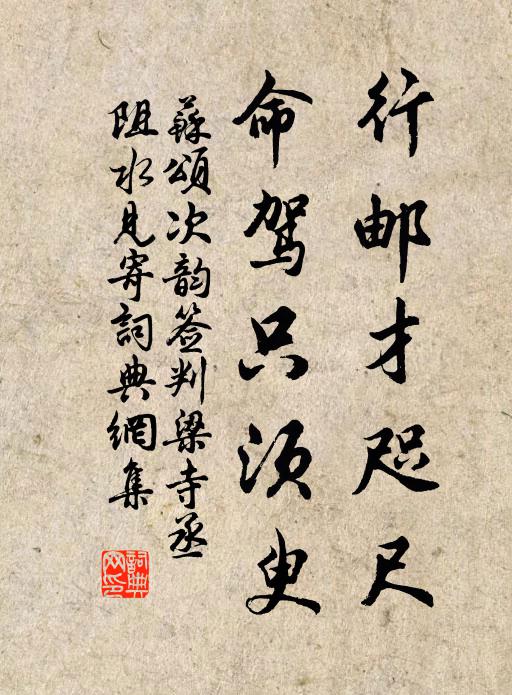 行邮才咫尺
命驾只须臾
蘇頌次韵签判梁寺丞
阻水見寄詞典網集
詞典
网印